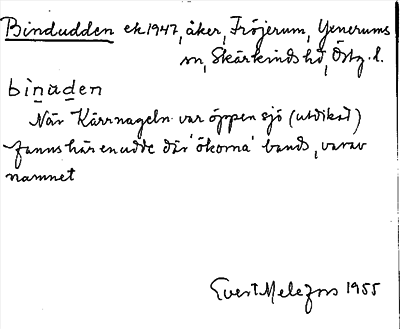 Bindudden ek 1947, åker, Fröjerum, Yxnerums
sn, Skärkinds hd, Östg. l.
binuden
När Kärrnageln var öppen sjö (utdikad)
fanns här en udde där 'ökorna' bands, varav
namnet
Evert Melefors 1955